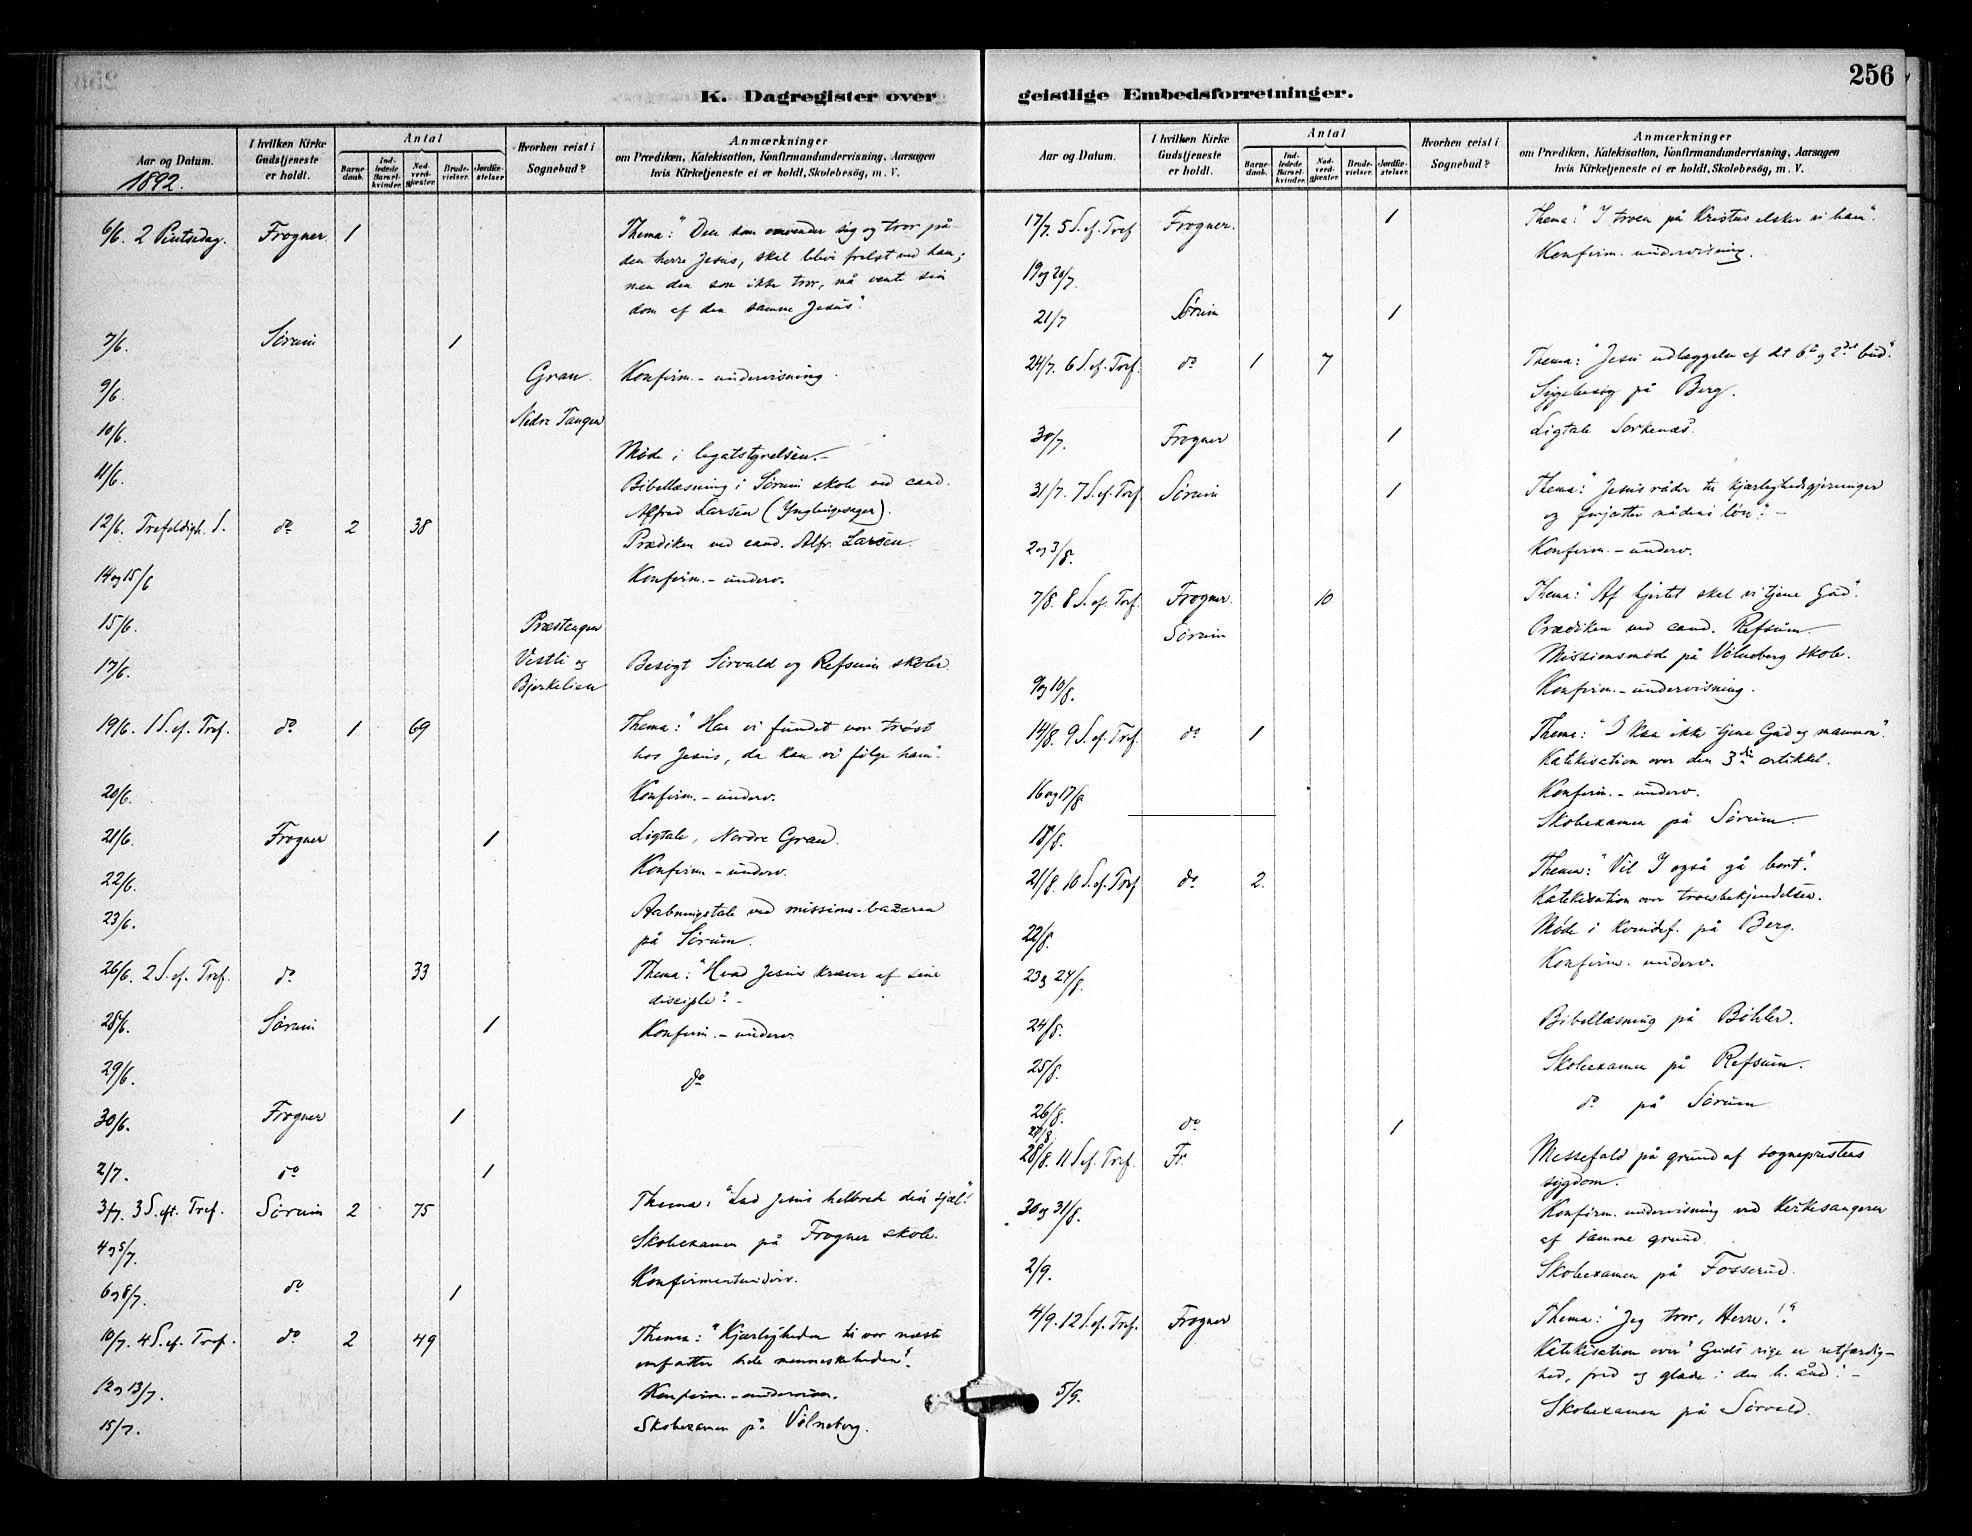 256
K. Dagregister over geistlige Embedsforretninger.
Aar og Datum.
1892.
I hvilken Kirke Gudstjeneste er holdt.
Antal
Barnedaab.
Indledede Barselkvinder.
Nadverdgjæster.
Brudevielser.
Jordfæstelser
Hvorhen reist i Sognebud?
Anmærkninger
om Prædiken, Katekisation, Konfirmandundervisning, Aarsagen
hvis Kirketjeneste ei er holdt, Skolebesög, m. V.
6/6. 2 Pintsedag. Frogner 1 Thema: "Den som omvender sig og tror på
den herre Jesus, skal blive frelst ved ham;
men den som ikke tror, må vente sin
dom af den samme Jesus".
7/6. Sørum 1
9/6. Gran. Konfirm.-undervisning.
10/6. Nedre Tangen
11/6. Møde i legatstyrelsen.-
Bibellæsning i Sørum skole ved cand.
Alfred Larsen (Ynglingesager).
12/6. Trefoldigh. S. do 2 38 Prædiken ved cand. Alfr. Larsen.
14 og 15/6 Konfirm.-underv.
15/6. Præstengen
17/6. Vestli og Besøgt Sørvald og Refsum skoler
Bjerkelien
19/6. 1 S. ef. Tref. do 1 69 Thema: "Har vi fundet vor trøst
hos Jesus, da kan vi følge ham".
20/6. Konfirm.-underv.
21/6. Frogner 1 Ligtale, Nordre Gran.
22/6. Konfirm-underv.
23/6. Aabningstale ved missions-bazaren
på Sørum.
26/6. 2 S. ef. Tref. do 33 Thema: "Hvad Jesus kræver af sine
disciple".-
28/6. Sørum 1 Konfirm.-underv.
29/6. do
30/6. Frogner 1
2/7. do 1
3/7. 3 S. eft. Tref. Sørum 2 75 Thema: "Lad Jesus helbrede din sjæl"!
4 og 5/7. Skoleexamen på Frogner skole.
6 og 8/7. do 1 Konfirmantunderv.
10/7. 4 S. ef. Tref. do 2 49 Thema: "Kjærligheden til vor næste
omfatter hele menneskeheden".
12 og 13/7. Konfirm.-undervisn.
15/7. Skoleexamen på Vølneberg.
Aar og Datum.
I hvilken Kirke Gudstjeneste er holdt.
Antal
Barnedaab.
Indledede Barselkvinder.
Nadverdgjæster.
Brudevielser.
Jordfæstelser.
Hvorhen reist i Sognebud?
Anmærkninger
om Prædiken, Katekisation, Konfirmandundervisning, Aarsagen
hvis Kirketjeneste ei er holdt, Skolebesög, m. V.
17/7. 5 S. ef. Tref Frogner. 1 Thema: "I troen på Kristus elsker vi ham".
19 og 20/7. Konfirm. undervisning.
21/7 Sørum 1
24/7. 6 S. ef. Tref. do 1 7 Thema: "Jesu udlæggelse af det 6te og 2det bud".
Sygebesøg på Berg.
30/7. Frogner 1 Ligtale Sorkenæs.
31/7. 7 S. ef. Tref. Sørum 1 Thema: "Jesus råder til kjærlighedsgjerninger
og forjætter nådens løn".-
2 og 3/8. Konfirm.-underv.
7/8. 8 S. ef. Tref. Frogner. 10 Thema: "Af hjertet skal vi tjene Gud".
Sørum Prædiken ved cand. Refsum.
Missionsmøde på Vølneberg skole.
9 og 10/8. Konfirm.-undervisning.
14/8. 9 S. ef. Tref. do 1 Thema: "I kan ikke tjene Gud og mammon".
Katekisation over den 3die artikkel.
16 og 17/8 Konfirm.-underv.
18/8. Skoleexamen på Sørum.
21/8. 10 S. ef. Tref do 2. Thema: "Vil I også gå bort".
Katekisation over troesbekjendelsen.
22/8. Møde i kvindef. på Berg.
23 og 24/8. Konfirm. underv.
24/8. Bibellæsning på Bøhler.
25/8. Skoleexamen på Refsum.
26/8. do på Sørum
27/8. do 1
28/8. 11 S. ef. Tref. Fr. Messefald på grund af sognepræstens
sygdom.
30 og 31/8. Konfirm. undervisning ved kirkesangeren
af samme grund.
2/9. Skoleexamen på Fosserud.
4/9. 12 S. ef. Tref. Frogner Thema: "Jeg tror, Herre!"
Katekisation over "Guds rige er retfærdig-
hed, fred og glæde i den h. ånd".-
5/9. Skoleexamen på Sørvald.